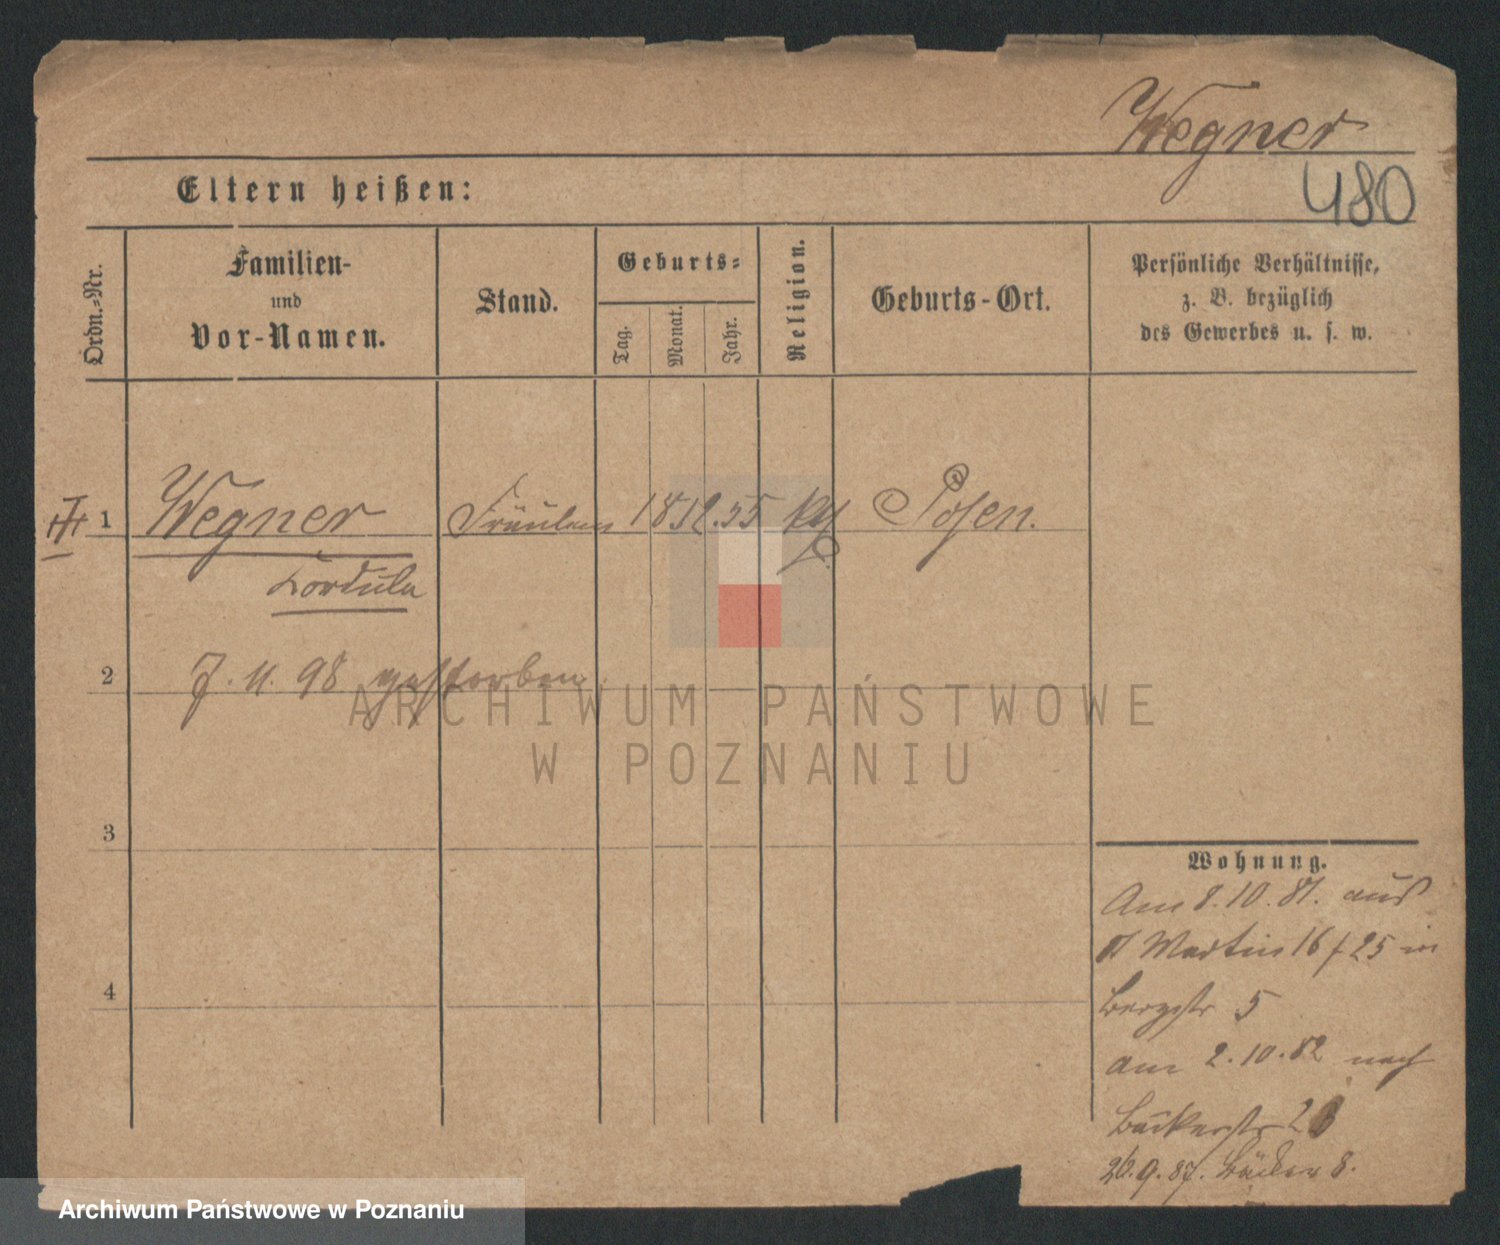 Wegner
480
Eltern heißen:
Ordn.-Nr.
Familien-
und
Vor-Namen.
Stand.
Geburts-
Tag.
Monat.
Jahr.
Religion.
Geburts-Ort.
Persönliche Verhältnisse,
z. B. bezüglich
des Gewerbes u. s. w.
1 Wegner Fräulein 18 12. 55 kath Posen.
Cordula
2
7. 11. 98 gestorben
ARCHIWUM PAŃSTWOWE
W POZNANIU
3
4
Wohnung.
Am 8. 10. 81. aus
St Martin 16/25 in
Bergstr 5
am 2. 10. 82 nach
Bäckerstr
26. 9. 87. Bäcker 8.
Archiwum Państwowe w Poznaniu